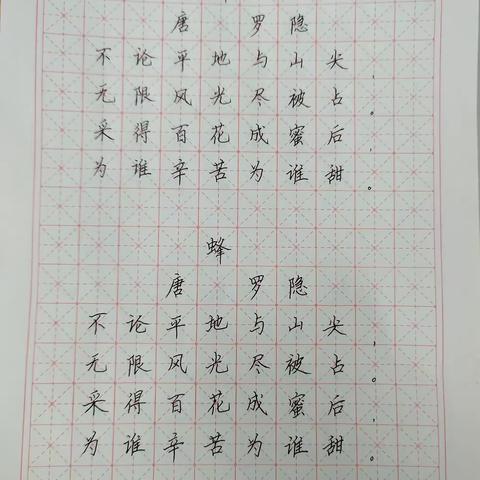 唐 罗隐
不论平地与山尖，
无限风光尽被占。
采得百花成蜜后，
为谁辛苦为谁甜。
蜂
唐 罗隐
不论平地与山尖，
无限风光尽被占。
采得百花成蜜后，
为谁辛苦为谁甜。